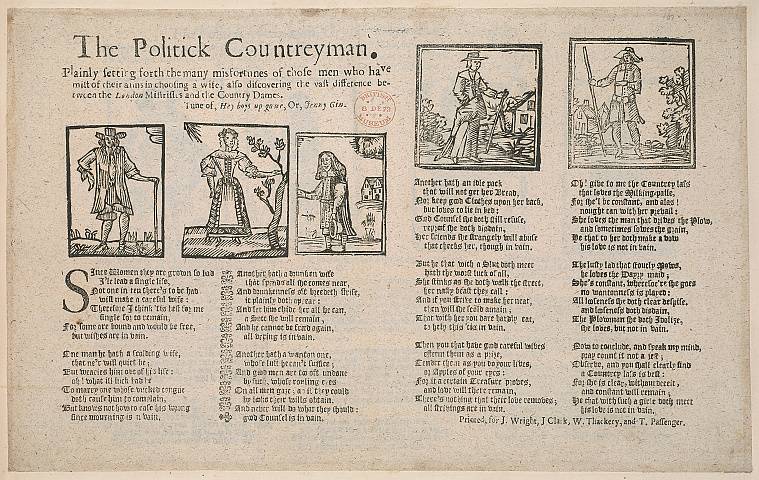 The Politick Countreyman.
Plainly setting forth the many misfortunes of those men who have
mist of their aims in choosing a wife, also discovering the vast difference be-
tween the London Mistrisses and the Country Dames.
Tune of, Hey boys up gone, Or, Jenny Gin.
BRITISH
MUSEUM
Since Women they are grown so bad
I'le lead a single life,
Not one in ten there's to be had
will make a careful wife:
Therefore I think 'tis best for me
single for to remain,
For some are bound and would be free,
but wishes are in vain.
One man he hath a scolding wife,
that ne'r will quiet be;
But wearies him out of his life:
oh! what ill luck had he
To marry one whose wicked tongue
doth cause him to complain,
But knows not how to ease his wrong
since mourning is in vain.
Another hath a drunken wife
that spends all she comes near,
And drunkenness oft breedeth strife,
it plainly doth appear:
And let him chide her all he can,
a Sot she will remain,
And he cannot be
all in vain.
Another hath a wanton one,
who's lust he can't suffice;
And good men are too oft undone
by such, whose rouling eyes
On all men gaze; as if they could
by looks their wills obtain.
And never will do what they should:
good Counsel is in vain.
Another hath an idle
that will not get her Bread,
Nor keep good Cloathes upon her back,
but loves to lie in bed:
God Counsel she doth still refuse,
she doth disdain,
Her friends she strangely will abuse
that checks her, though in vain.
But he that with a Slut doth meet
hath the worst luck of all,
She stinks as she doth walk the street,
her nasty beast they call:
And if you strive to make her neat,
then will she still complain;
That with her you dare hardly eat,
to help this 'tis in vain.
Then you that have good careful wives
esteem them as a prize,
Tender them as you do your lives,
or apples of your eyes:
For it a certain Treasure proves,
and love will there remain,
There's nothing that their love removes;
all strivings are in vain.
Oh! give to me the Countrey lass
that loves the Milking-palle,
For she'l be constant, and alas!
nought can with her prevail:
She loves the man that drives the Plow,
and sometimes solves the grain,
He that to her doth make a vow
his love is not in vain.
The lusty lad that stoutly Mows,
he loves the Dayry maid;
She's constant, wheresoe're she goes
no wantonness is played;
All loseness she doth clear despise,
and leaseness doth disdain,
The Plowman she doth Idolize,
she loves, but not in vain.
Now to conclude, and speak my mind,
pray count it not a jest;
Observe, and you shall clearly find
a Countrey lass is best:
For she is clear, without deceit,
and constant will remain;
He that with such a girle doth meet
his love is not in vain.
Printed, for J. Wright, J Clark, W. Thackery, and T. Passenger.